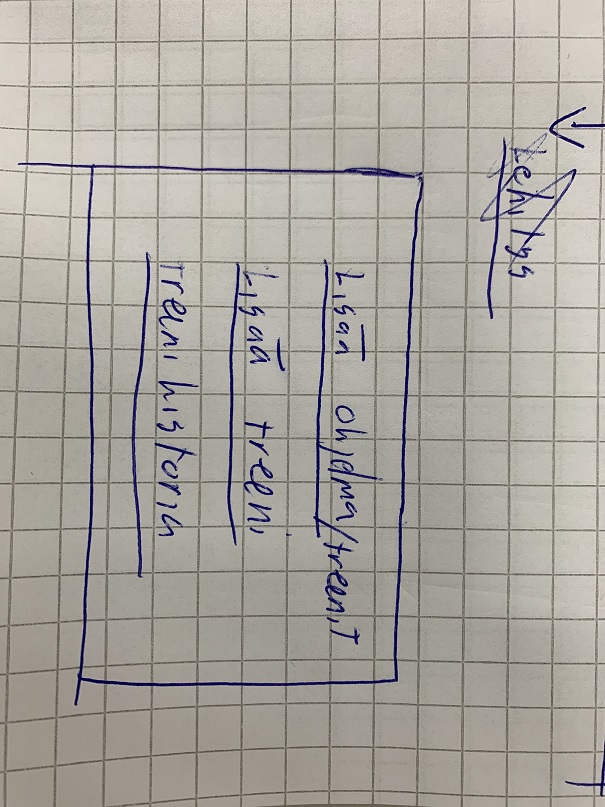 Kehitys
Lisää ohjelma/treenit
Lisää treeni
Treeni historia